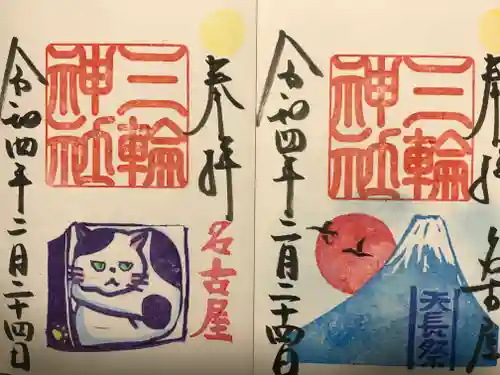 奉拝
三輪
神社
名古屋
令和四年二月二十四日
奉拝
三輪
神社
名古屋
天長祭
令和四年二月二十四日